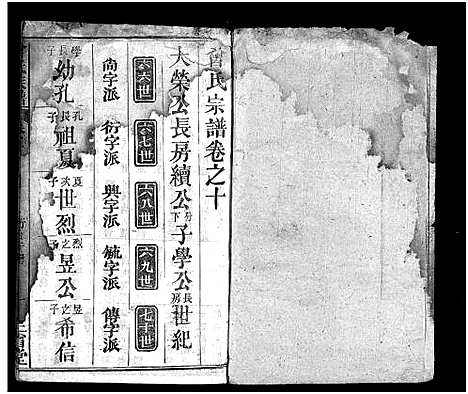 曾氏宗譜卷之十
大榮公長房續公分下子學公長房世紀
六六世 六七世 六八世 六九世 七十世
尚字派 衍字派 興字派 毓字派 傳字派
學長子幼孔 孔長子祖夏 夏次子世烈 烈之子昱公 昱之子希信